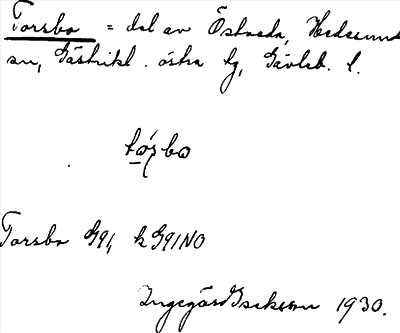 Torsbo = del av Östveda, Hedesunda
sn, Gästrikl. östra tg, Gävleb. l.
to̱ŕsbo
Torsbo G91, k G91NO
Ingegärd Isaksson 1930.